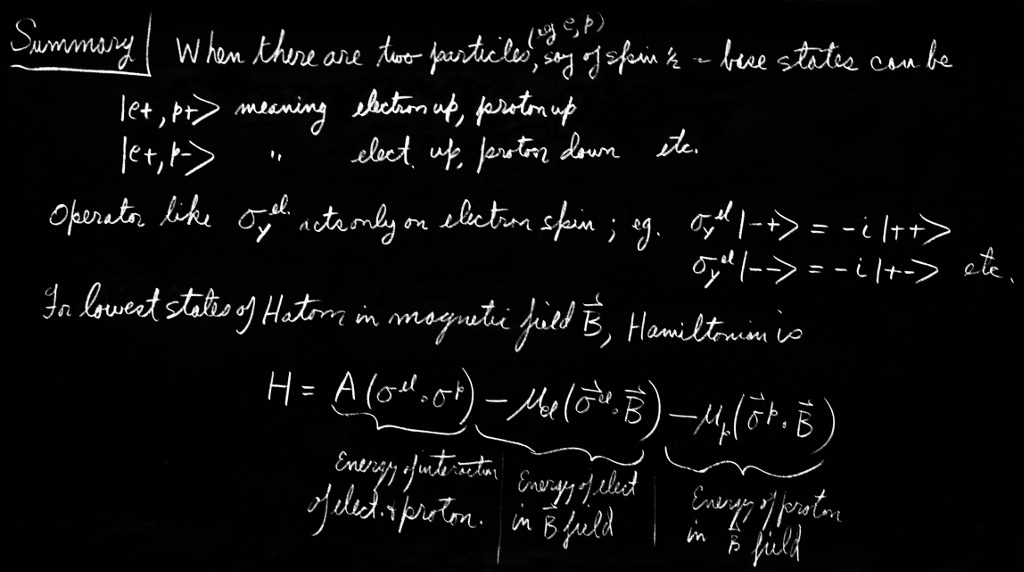 Summary | When there are two particles, (eg e, p) say of spin ½ – base states can be
|e+, p+> meaning electron up, proton up
|e+, p-> " elect. up, proton down etc.
Operator like σ_y^el. acts only on electron spin ; eg. σ_y^el |-+> = -i |++>
σ_y^el |--> = -i |+-> etc.
For lowest states of H atom in magnetic field B⃗, Hamiltonian is
H = A (σ^el · σ^p) – μ_el (σ⃗^el · B⃗) – μ_p (σ⃗^p · B⃗)
Energy of interaction of elect. & proton.
Energy of elect in B⃗ field
Energy of proton in B⃗ field